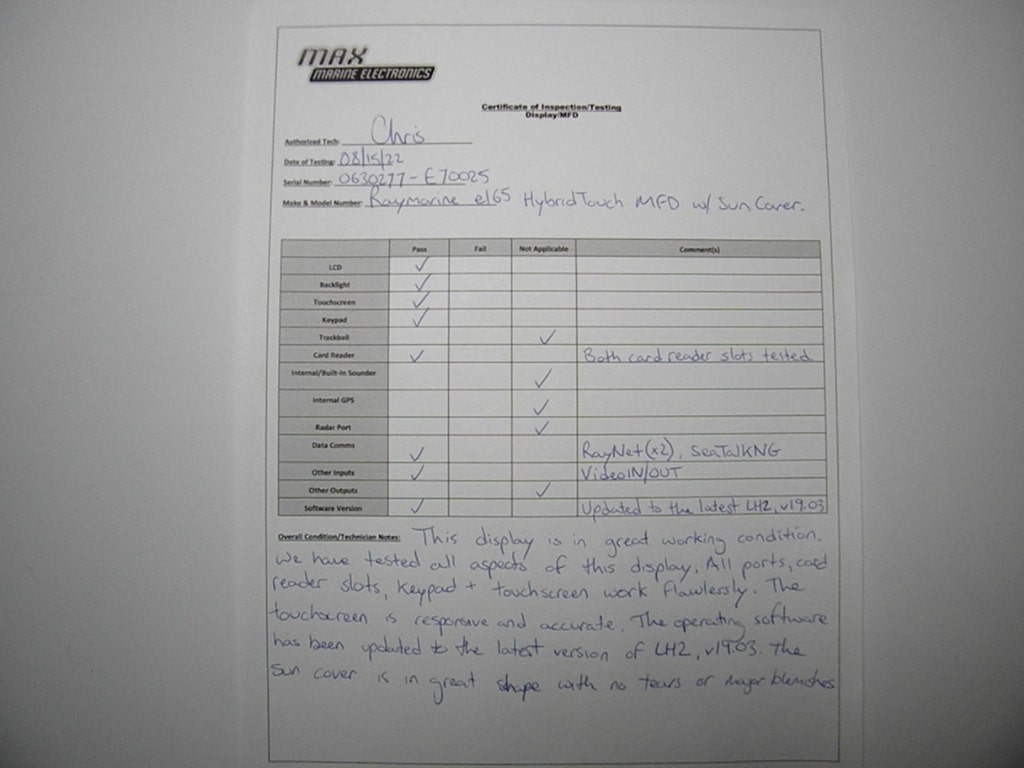 MAX
MARINE ELECTRONICS
Certificate of Inspection/Testing
Display/MFD
Authorized Tech: Chris
Date of Testing: 08/15/22
Serial Number: 0630277-E70025
Make & Model Number: Raymarine e165 HybridTouch MFD w/ Sun Cover.
Pass Fail Not Applicable Comment(s)
LCD ✓
Backlight ✓
Touchscreen ✓
Keypad ✓
Trackball ✓
Card Reader ✓ Both card reader slots tested
Internal/Built-In Sounder ✓
Internal GPS ✓
Radar Port ✓
Data Comms ✓ RayNet(x2), SeaTalkNG
Other Inputs ✓ VideoIN/OUT
Other Outputs ✓
Software Version ✓ Updated to the latest LH2, v19.03
Overall Condition/Technician Notes: This display is in great working condition.
We have tested all aspects of this display. All ports, card
reader slots, keypad + touchscreen work flawlessly. The
touchscreen is responsive and accurate. The operating software
has been updated to the latest version of LH2, v19.03. The
Sun cover is in great shape with no tears or major blemishes